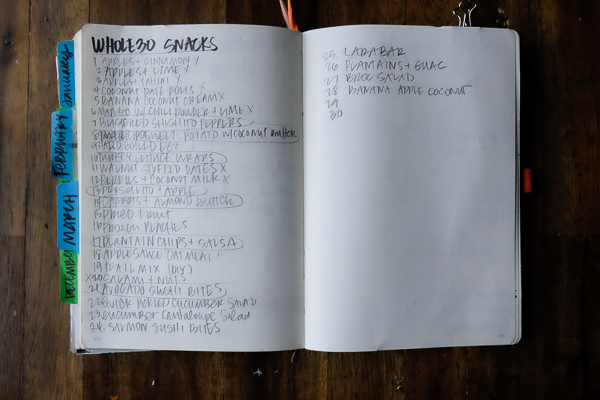 WHOLE30 SNACKS
1 APPLES + CINNAMON X
2 APPLES + LIME X
3 APPLES + TAHINI X
4 COCONUT DATE ROLLS X
5 BANANA COCONUT CREAM X
6 MANGO W/ CHILI POWDER + LIME X
7 BLISTERED SHISHITO PEPPERS
8 SWEET POTATO W/ COCONUT BUTTER
9 HARD BOILED EGG
10 TURKEY LETTUCE WRAPS
11 WALNUT STUFFED DATES X
12 BERRIES + COCONUT MILK X
13 PROSCIUTTO + APPLE
14 CARROTS + ALMOND BUTTER
15 DRIED FRUIT
16 FROZEN PEACHES
17 PLANTAIN CHIPS + SALSA
18 APPLESAUCE OATMEAL
19 TRAIL MIX (DIY)
X20 SALAMI + NUTS
21 AVOCADO SUSHI BITES
22 QUICK PICKLED CUCUMBER SALAD
23 CUCUMBER CANTALOUPE Salad
24 SALMON SUSHI BITES
25 LARABAR
26 PLANTAINS + GUAC
27 BROC SALAD
28 BANANA APPLE COCONUT
29
30
January
FEBRUARY
MARCH
DECEMBER